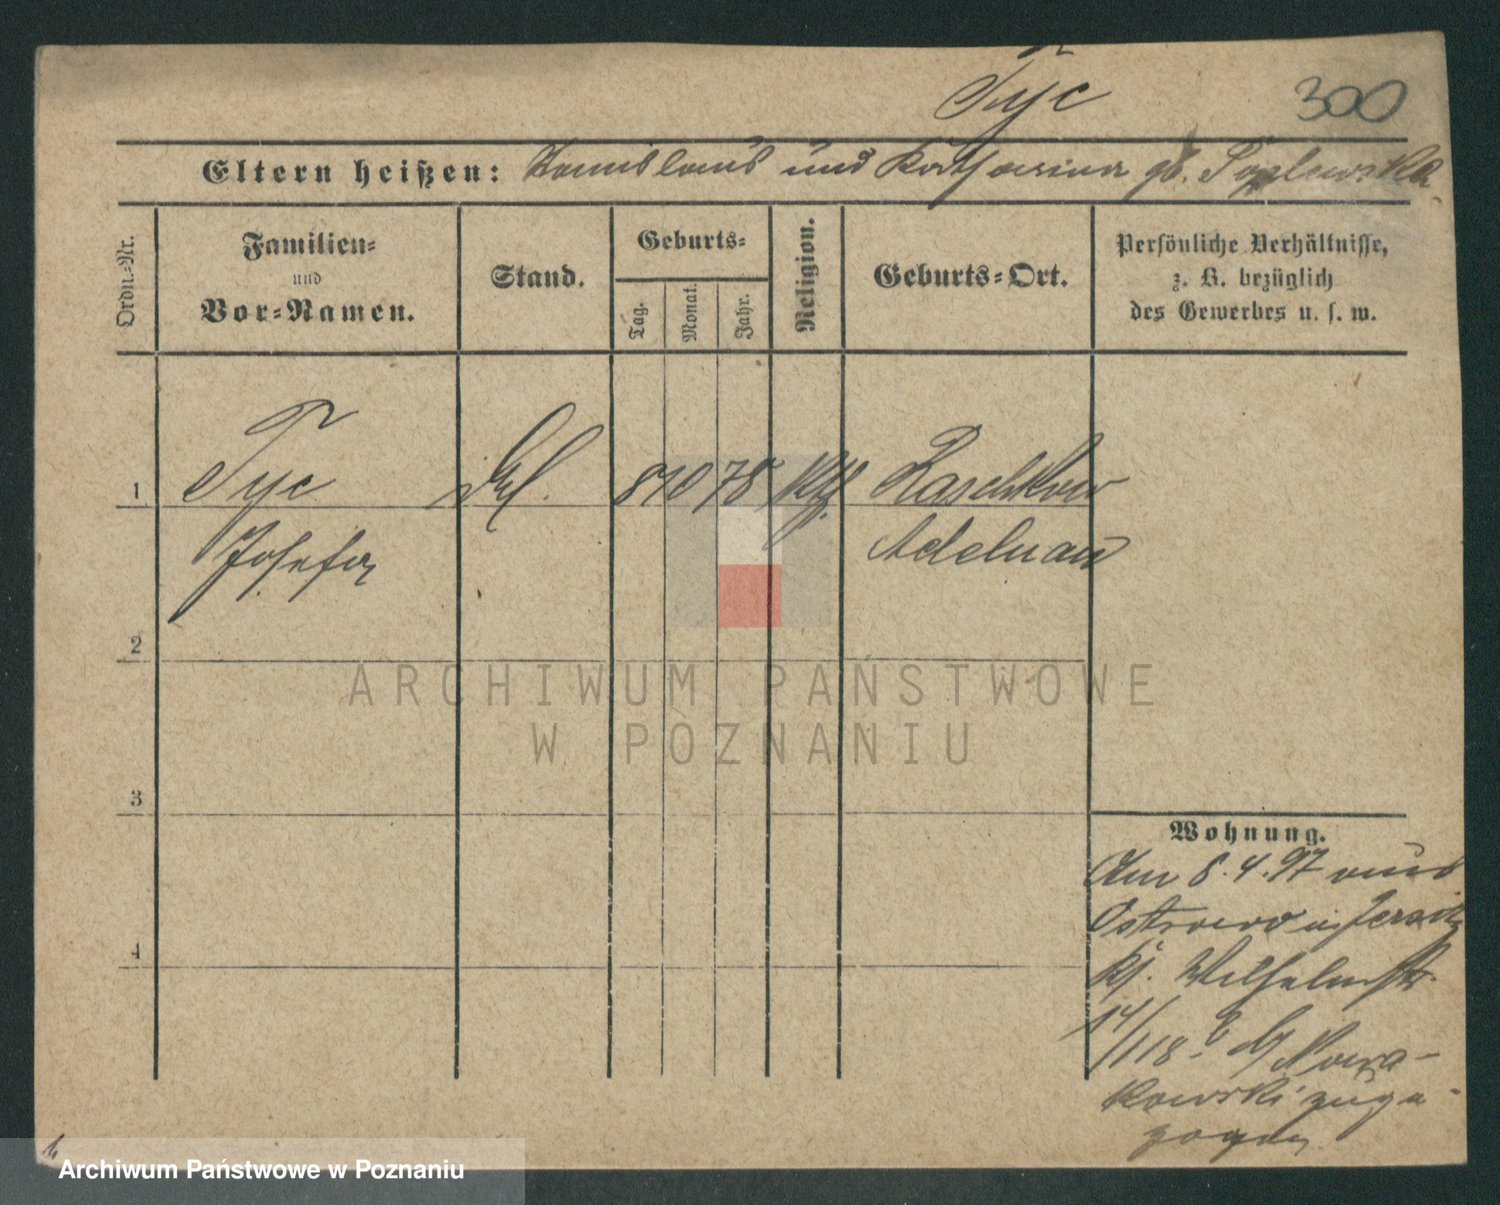 Tyc 300
Eltern heißen: Stanislaus und Katharina gb.
Ordn.-Nr.
Familien-
und
Vor-Namen.
Stand.
Geburts-
Tag.
Monat.
Jahr.
Religion.
Geburts-Ort.
Persönliche Verhältnisse,
z. B. bezüglich
des Gewerbes u. s. w.
1 Tyc 8 10 78 Kth. Raschkow
Josefa Adelnau
2
3
4
Wohnung.
Am 8.4.97 aus
Ostrowo in Jersitz
Wilhelmstr.
14/118. b/ Nowa-
kowski zuge-
zogen
ARCHIWUM PAŃSTWOWE
W POZNANIU
Archiwum Państwowe w Poznaniu